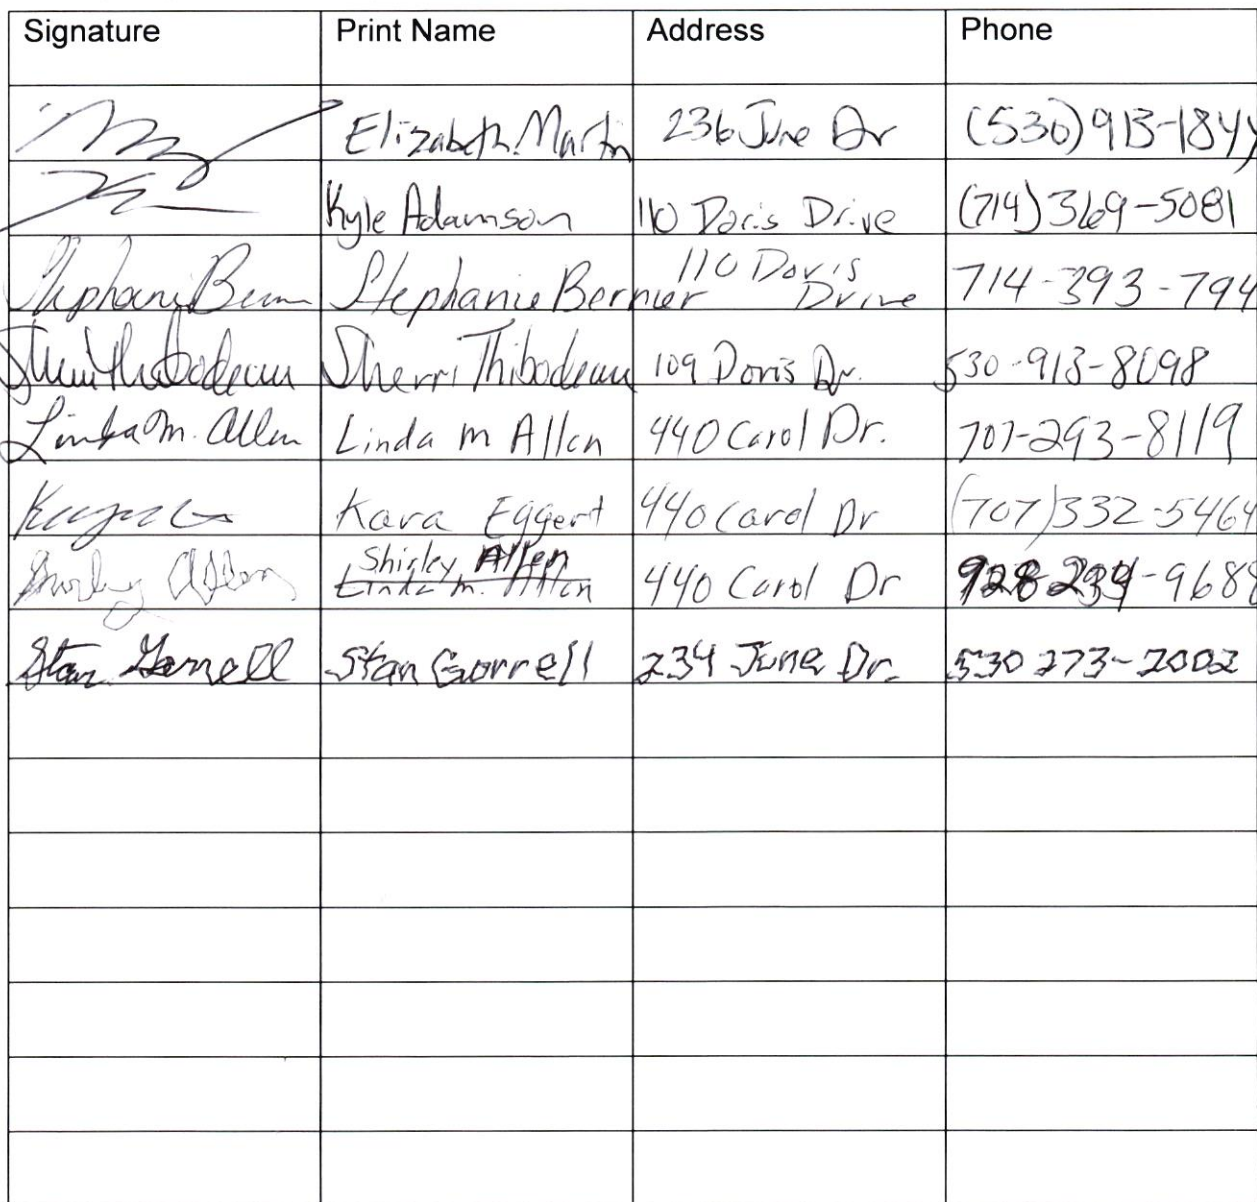 Signature Print Name Address Phone
Elizabeth Martin 236 June Dr (530) 913-184
Kyle Adamson 110 Doris Drive (714) 369-5081
Stephanie Bernier 110 Doris Drive 714-393-794
Sherri Thibodeau Sherri Thibodeau 109 Doris Dr. 530-913-8098
Linda M. Allen Linda M Allen 440 Carol Dr. 707-293-8119
Kara Eggert 440 Carol Dr (707) 332-5464
Shirley Allen Shirley Allen 440 Carol Dr -9688
Linda M. Allen
Stan Gorrell Stan Gorrell 234 June Dr. 530 273-2002